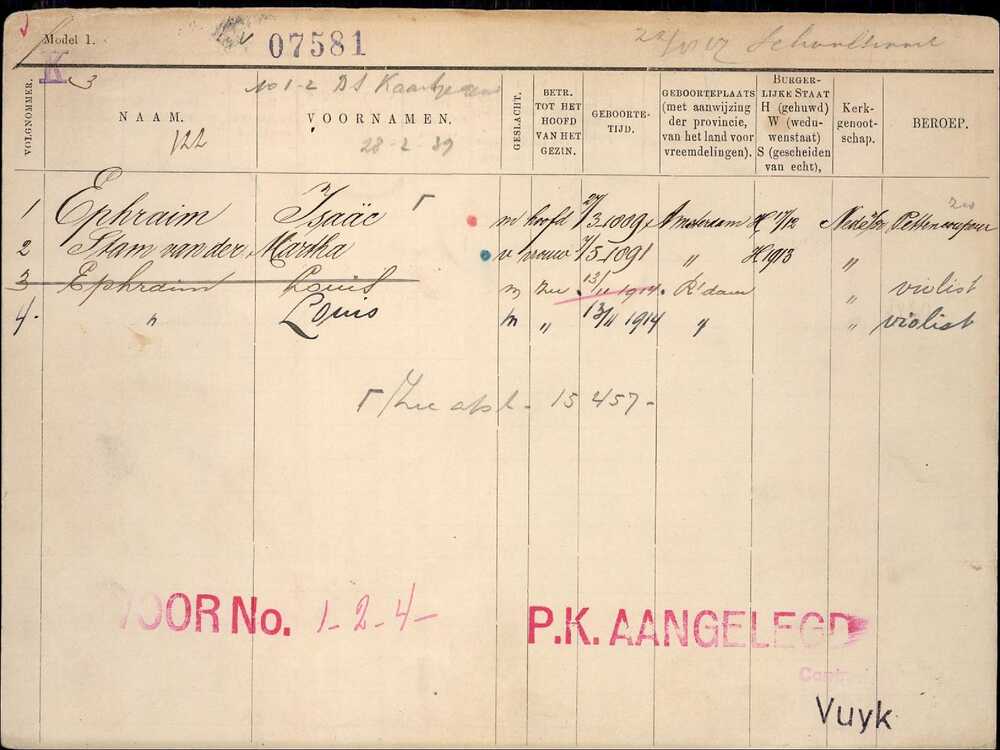 Model 1.
07581
K 3
No 1-2
28-2-39
VOLGNOMMER.
NAAM.
122
VOORNAMEN.
GESLACHT.
BETR. TOT HET HOOFD VAN HET GEZIN.
GEBOORTE-TIJD.
GEBOORTEPLAATS (met aanwijzing der provincie, van het land voor vreemdelingen).
BURGER-LIJKE STAAT H (gehuwd) W (wedu-wenstaat) S (gescheiden van echt),
Kerk-genoot-schap.
BEROEP.
1 Ephraim Isaäc m hoofd Amsterdam H
2 Stam van der Martha v vrouw " H 1913 "
3 Ephraim Louis m 13/11 1914 R'dam " violist
4. " Louis m " 13/11 1914 " " violist
15457-
VOOR No. 1-2-4-
P.K. AANGELEGD
Vuyk